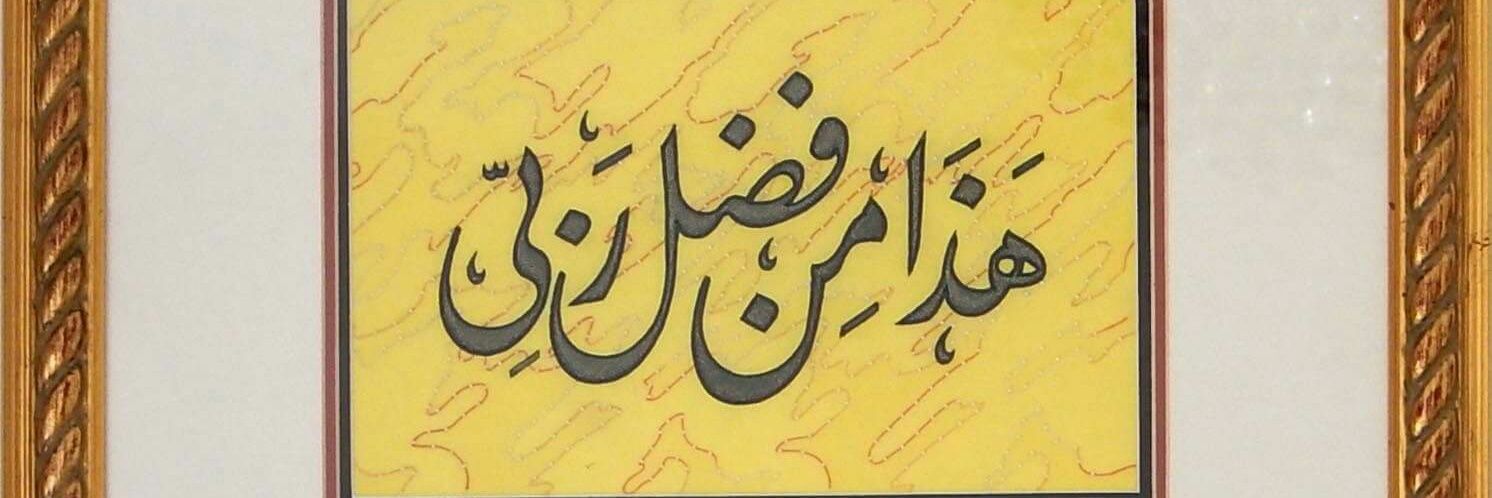 هَذَا مِن فَضلِ رَبِّي